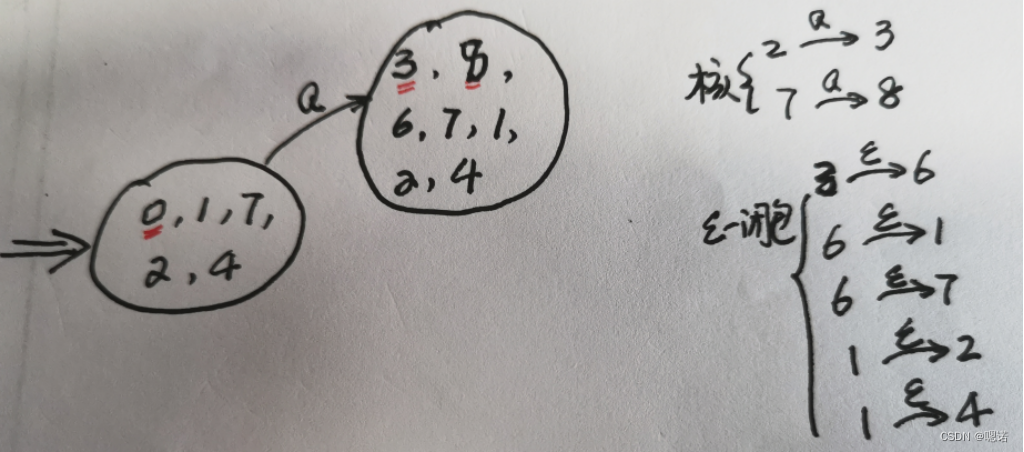 a
3, 8,
6, 7, 1,
2, 4
0, 1, 7,
2, 4
核{ 2 a→ 3
7 a→ 8
ε-闭包{ 3 ε→ 6
6 ε→ 1
6 ε→ 7
1 ε→ 2
1 ε→ 4
CSDN @嗯诺